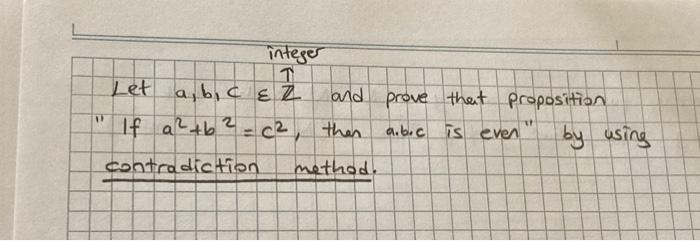 integer
Let a,b,c ε ℤ and prove that proposition
" If a²+b² = c², then a.b.c is even" by using
contradiction method.